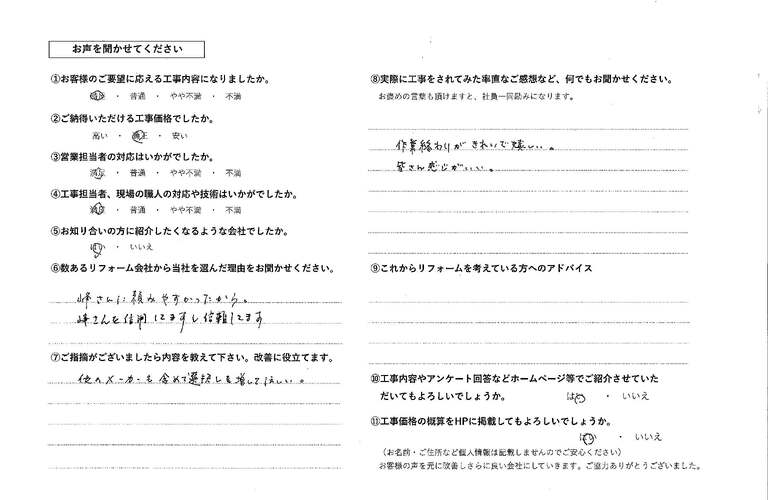 お声を聞かせてください
①お客様のご要望に応える工事内容になりましたか。
満足 ・ 普通 ・ やや不満 ・ 不満
②ご納得いただける工事価格でしたか。
高い ・ 適正 ・ 安い
③営業担当者の対応はいかがでしたか。
満足 ・ 普通 ・ やや不満 ・ 不満
④工事担当者、現場の職人の対応や技術はいかがでしたか。
満足 ・ 普通 ・ やや不満 ・ 不満
⑤お知り合いの方に紹介したくなるような会社でしたか。
はい ・ いいえ
⑥数あるリフォーム会社から当社を選んだ理由をお聞かせください。
峰さんに頼みやすかったから。
峰さんを信用してますし信頼してます
⑦ご指摘がございましたら内容を教えて下さい。改善に役立てます。
他のメーカーも含めて選択しを増してほしい。
⑧実際に工事をされてみた率直なご感想など、何でもお聞かせください。
お褒めの言葉も頂けますと、社員一同励みになります。
作業終わりがきれいで嬉しい。
皆さん感じがいい。
⑨これからリフォームを考えている方へのアドバイス
⑩工事内容やアンケート回答などホームページ等でご紹介させていた
だいてもよろしいでしょうか。 はい ・ いいえ
⑪工事価格の概算をHPに掲載してもよろしいでしょうか。
はい ・ いいえ
（お名前・ご住所など個人情報は記載しませんのでご安心ください）
お客様の声を元に改善しさらに良い会社にしていきます。ご協力ありがとうございました。